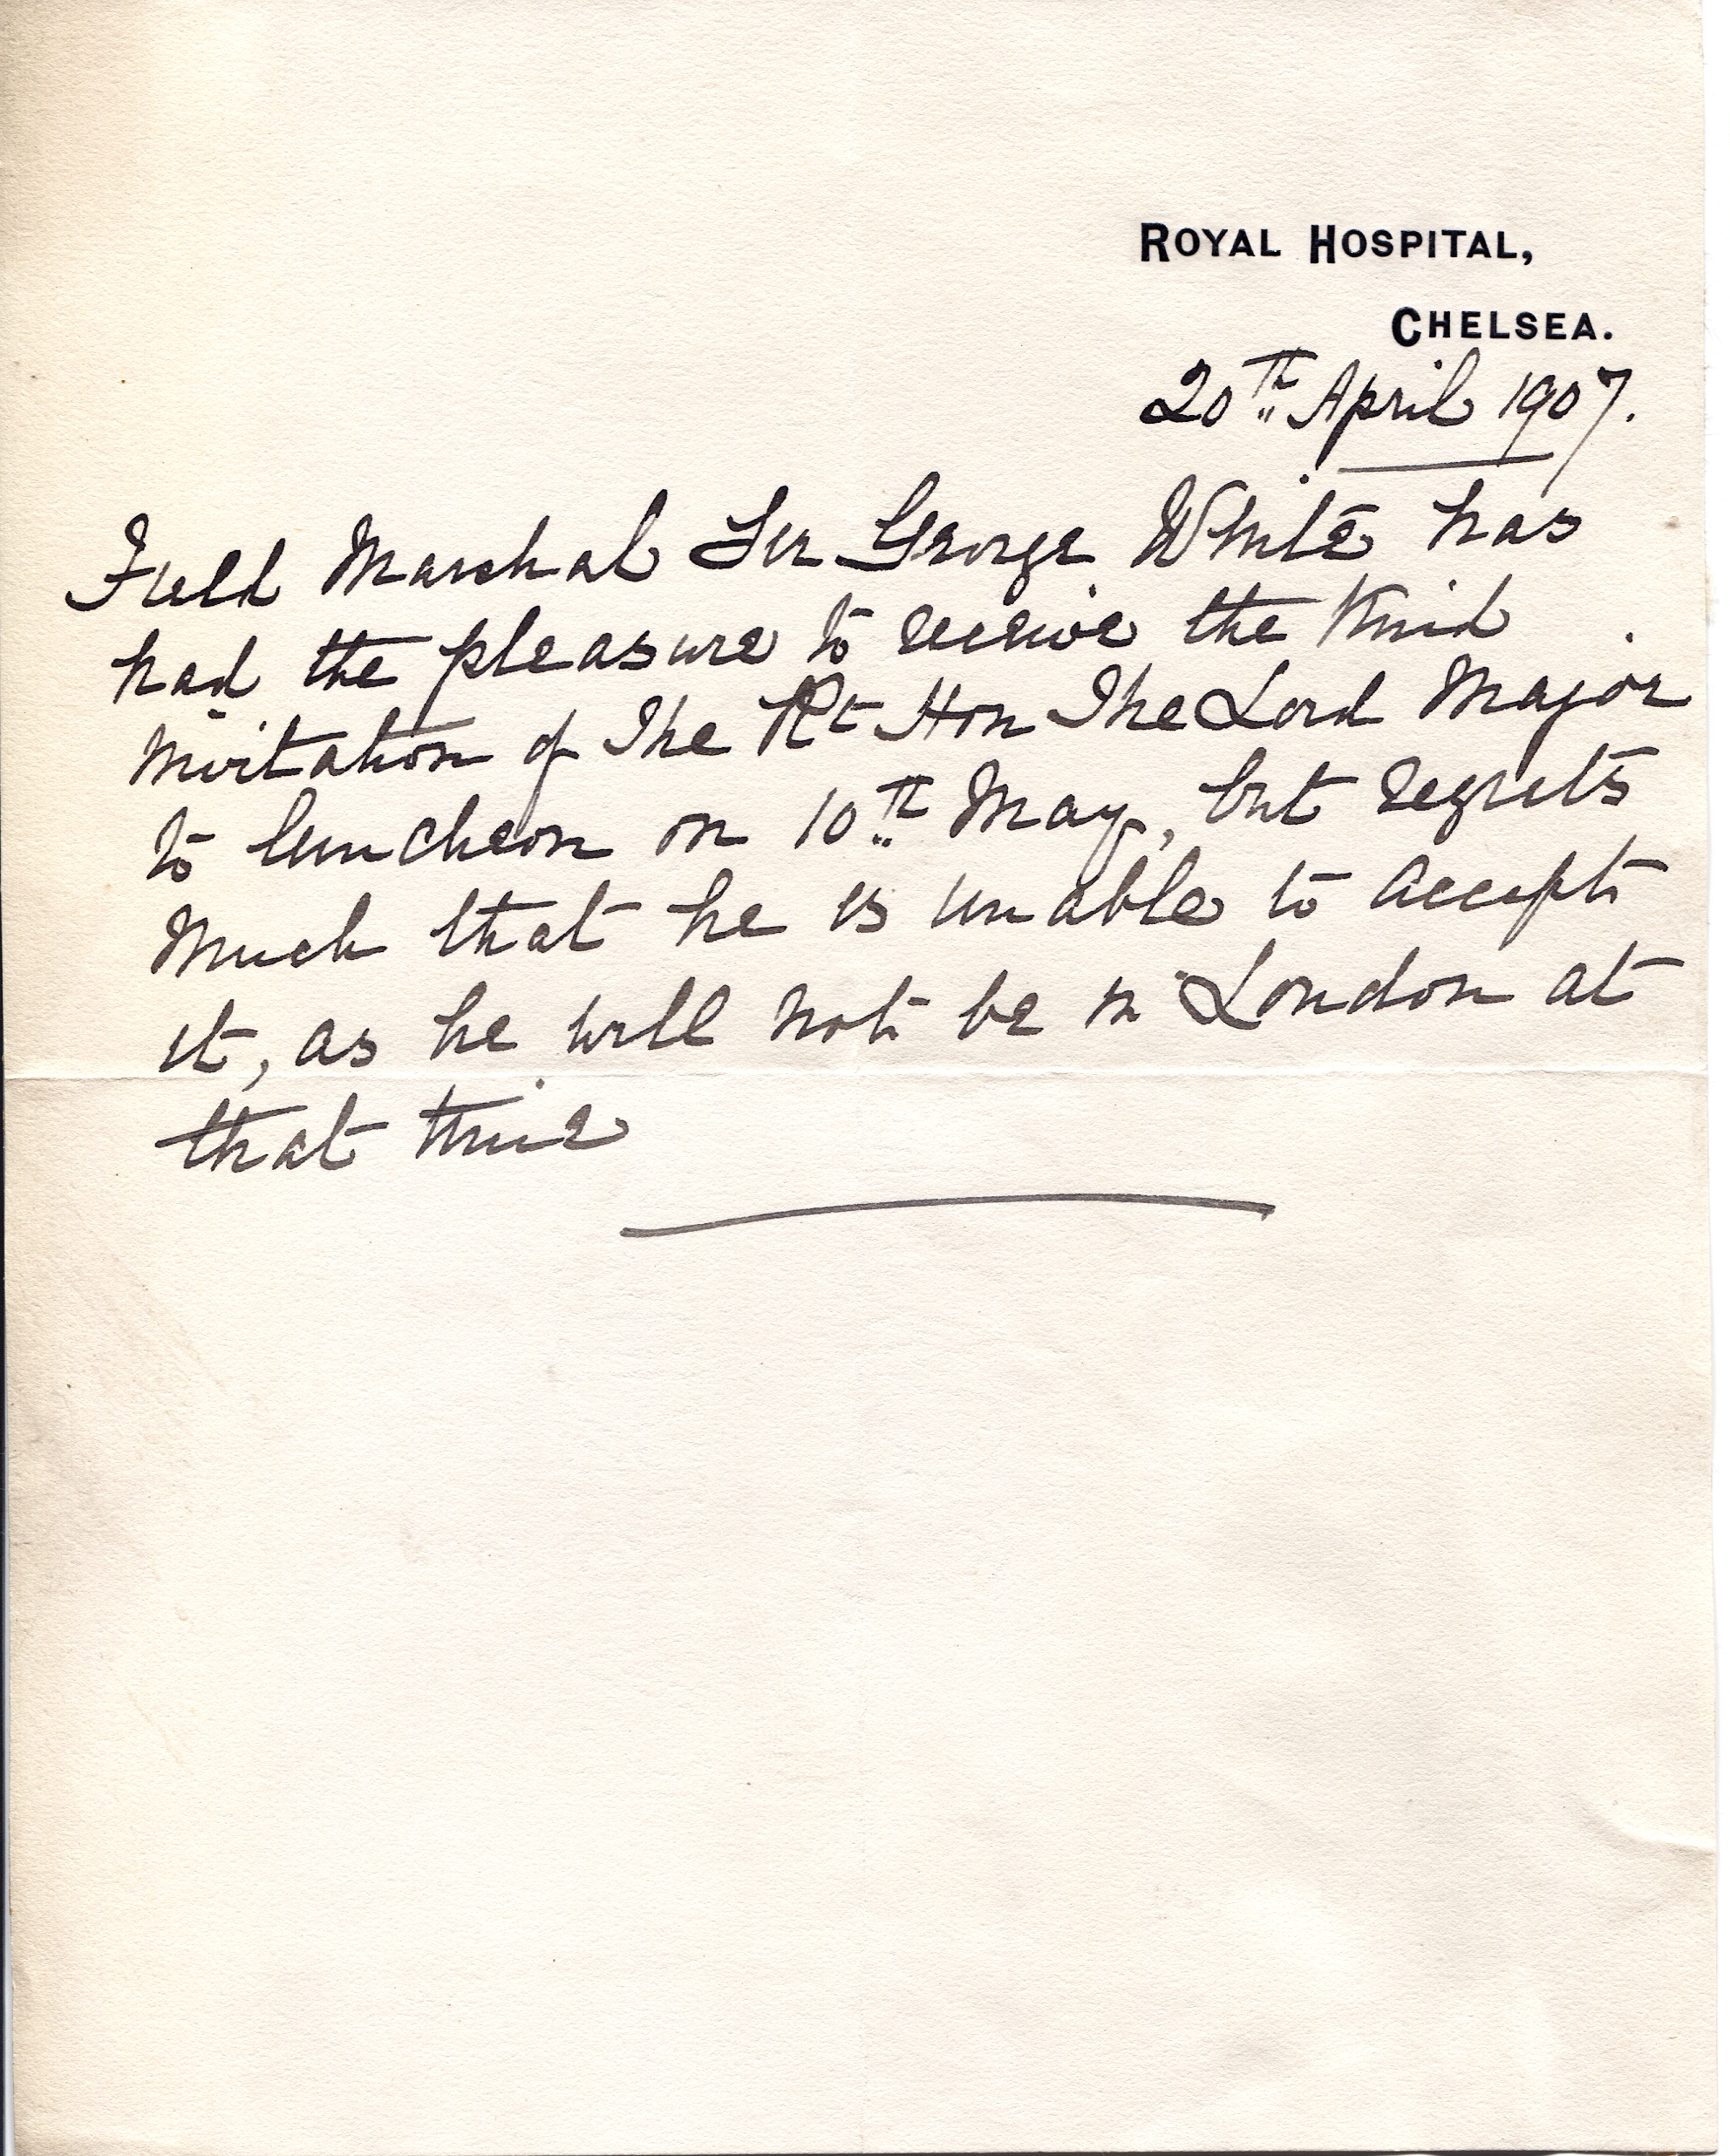 ROYAL HOSPITAL,
CHELSEA.
20th April 1907.
Field Marshal Sir George White has
had the pleasure to receive the kind
invitation of The Rt Hon The Lord Mayor
to luncheon on 10th May, but regrets
much that he is unable to accept
it, as he will not be in London at
that time